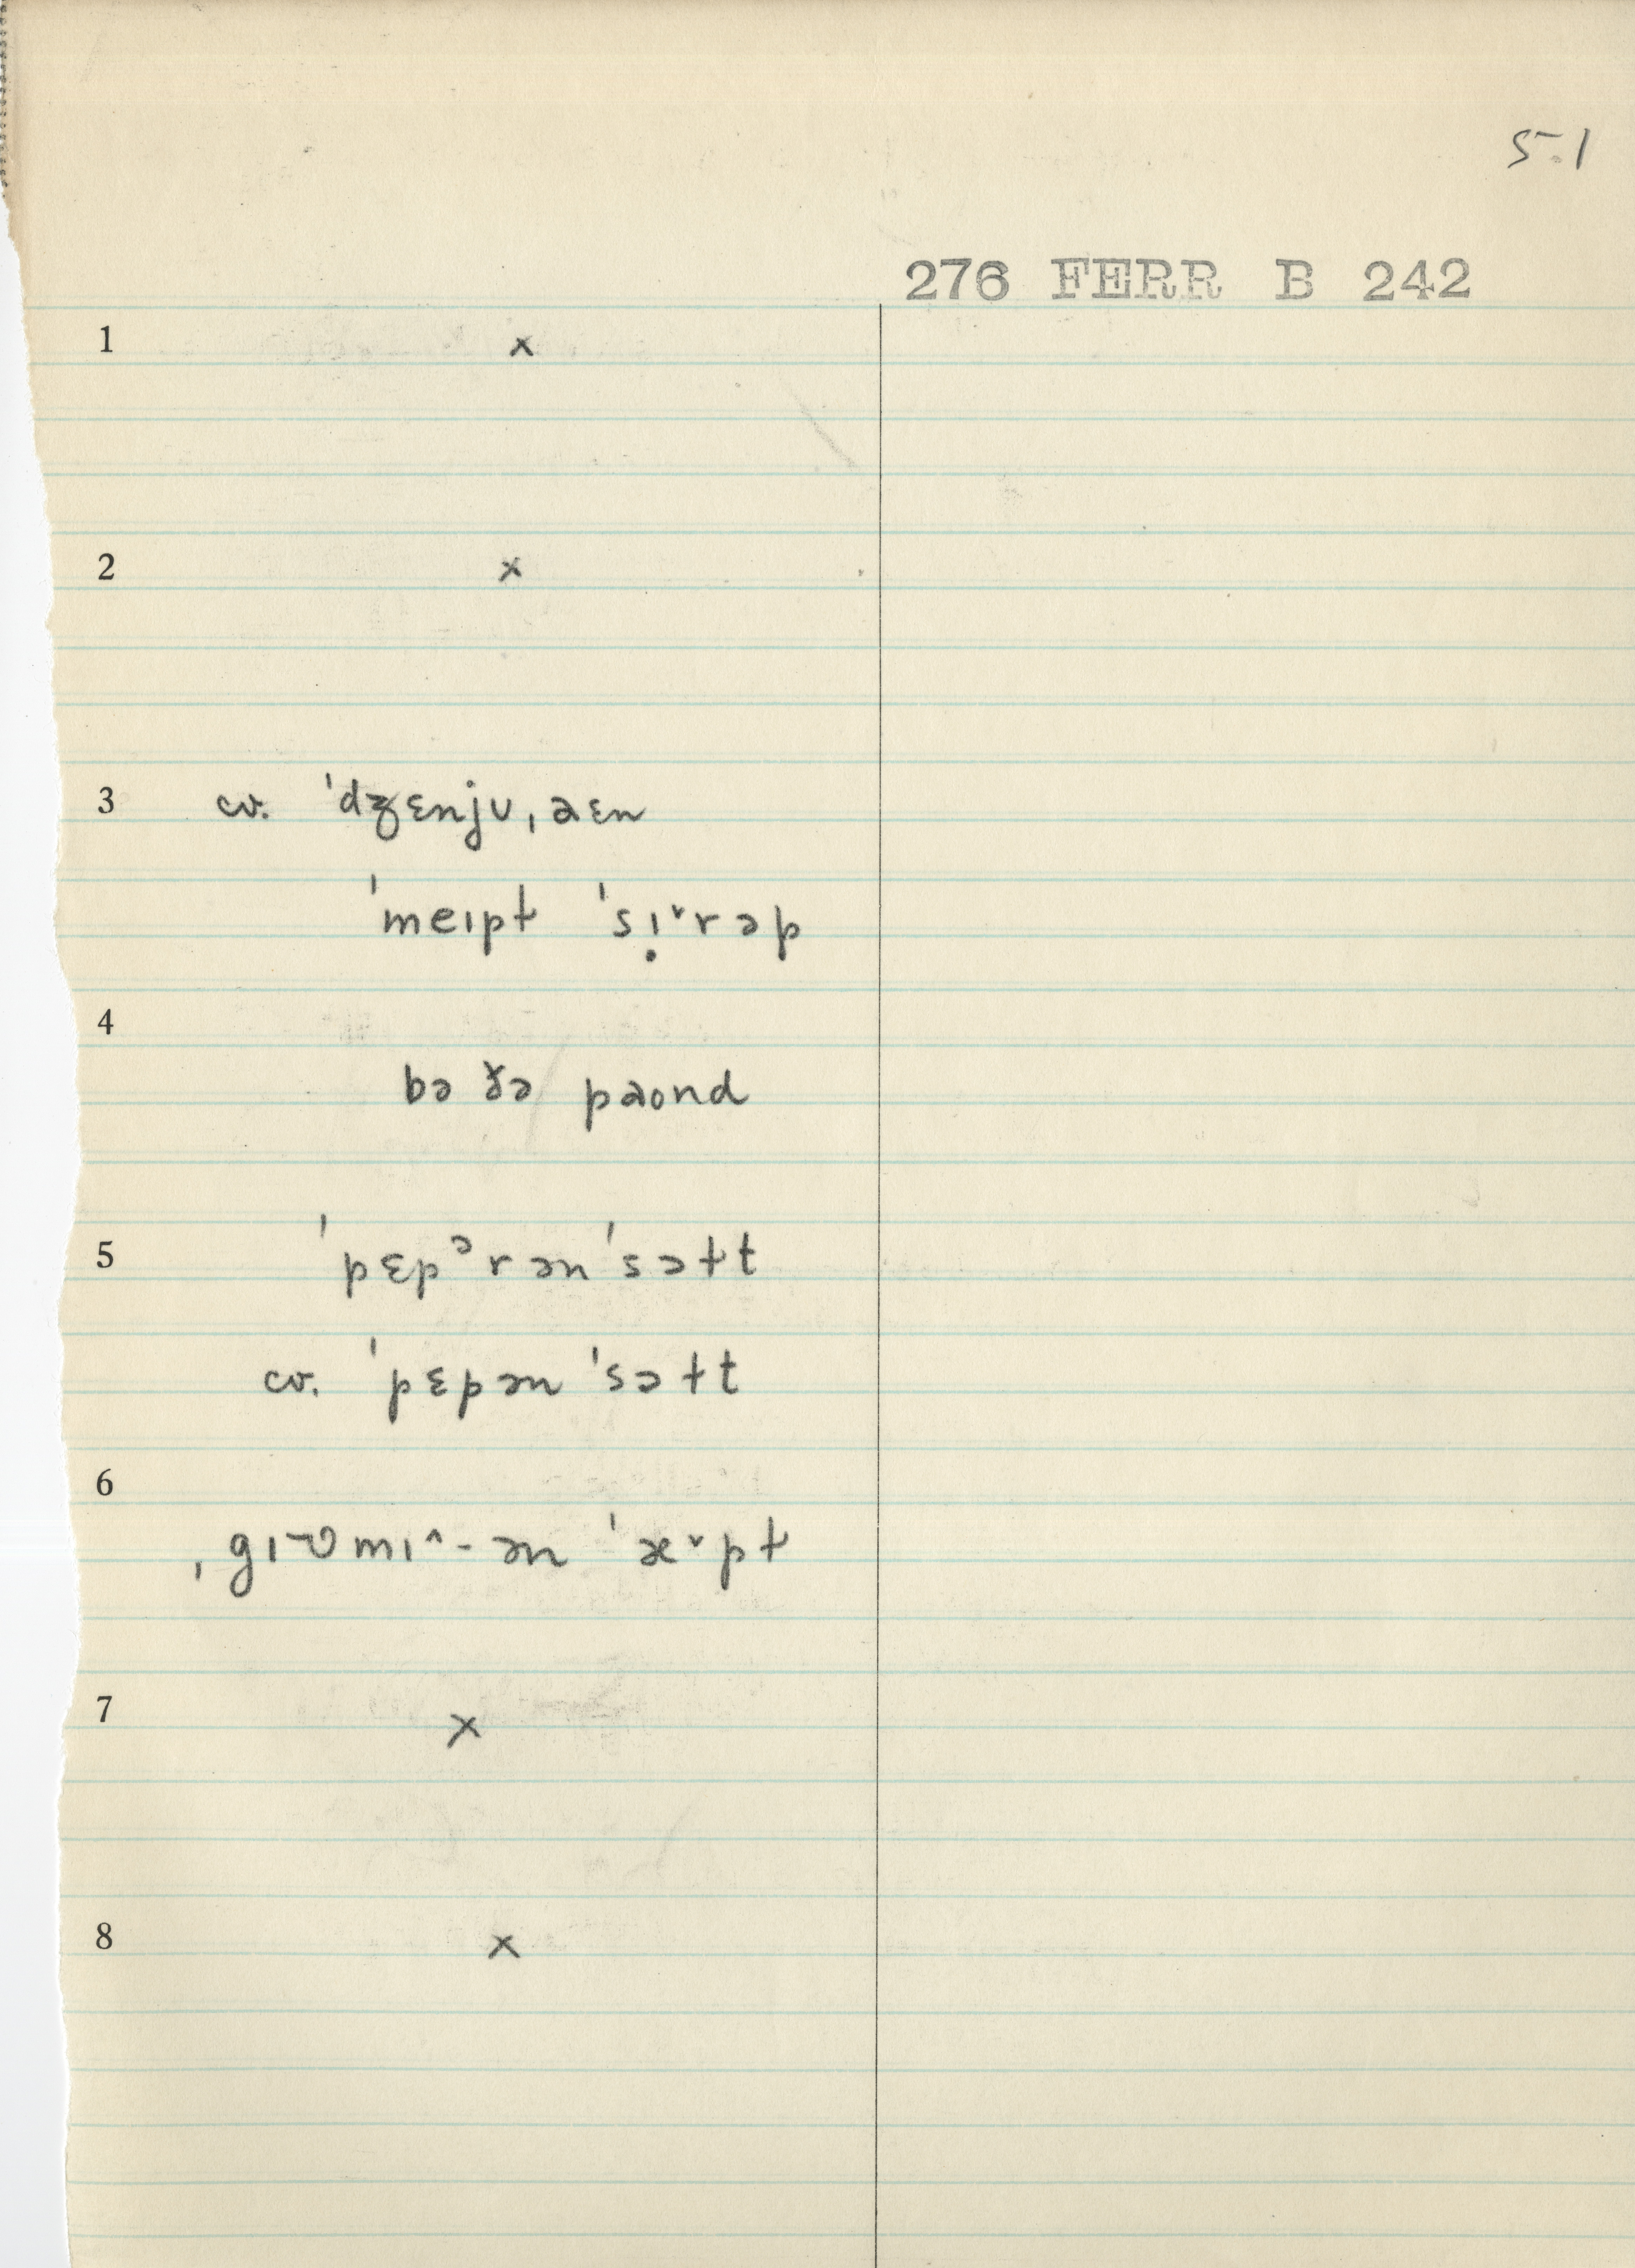 5.1
276 FERR B 242
1 x
2 x
3 cv. ˈdʒɛnjʊˌaɛn
ˈmeɪpɫ ˈsɪ̣˅rəp
4
bə ðə paond
5 ˈpɛpᵊrənˈsɔɫt
cv. ˈpɛpənˈsɔɫt
6
7 x
8 x